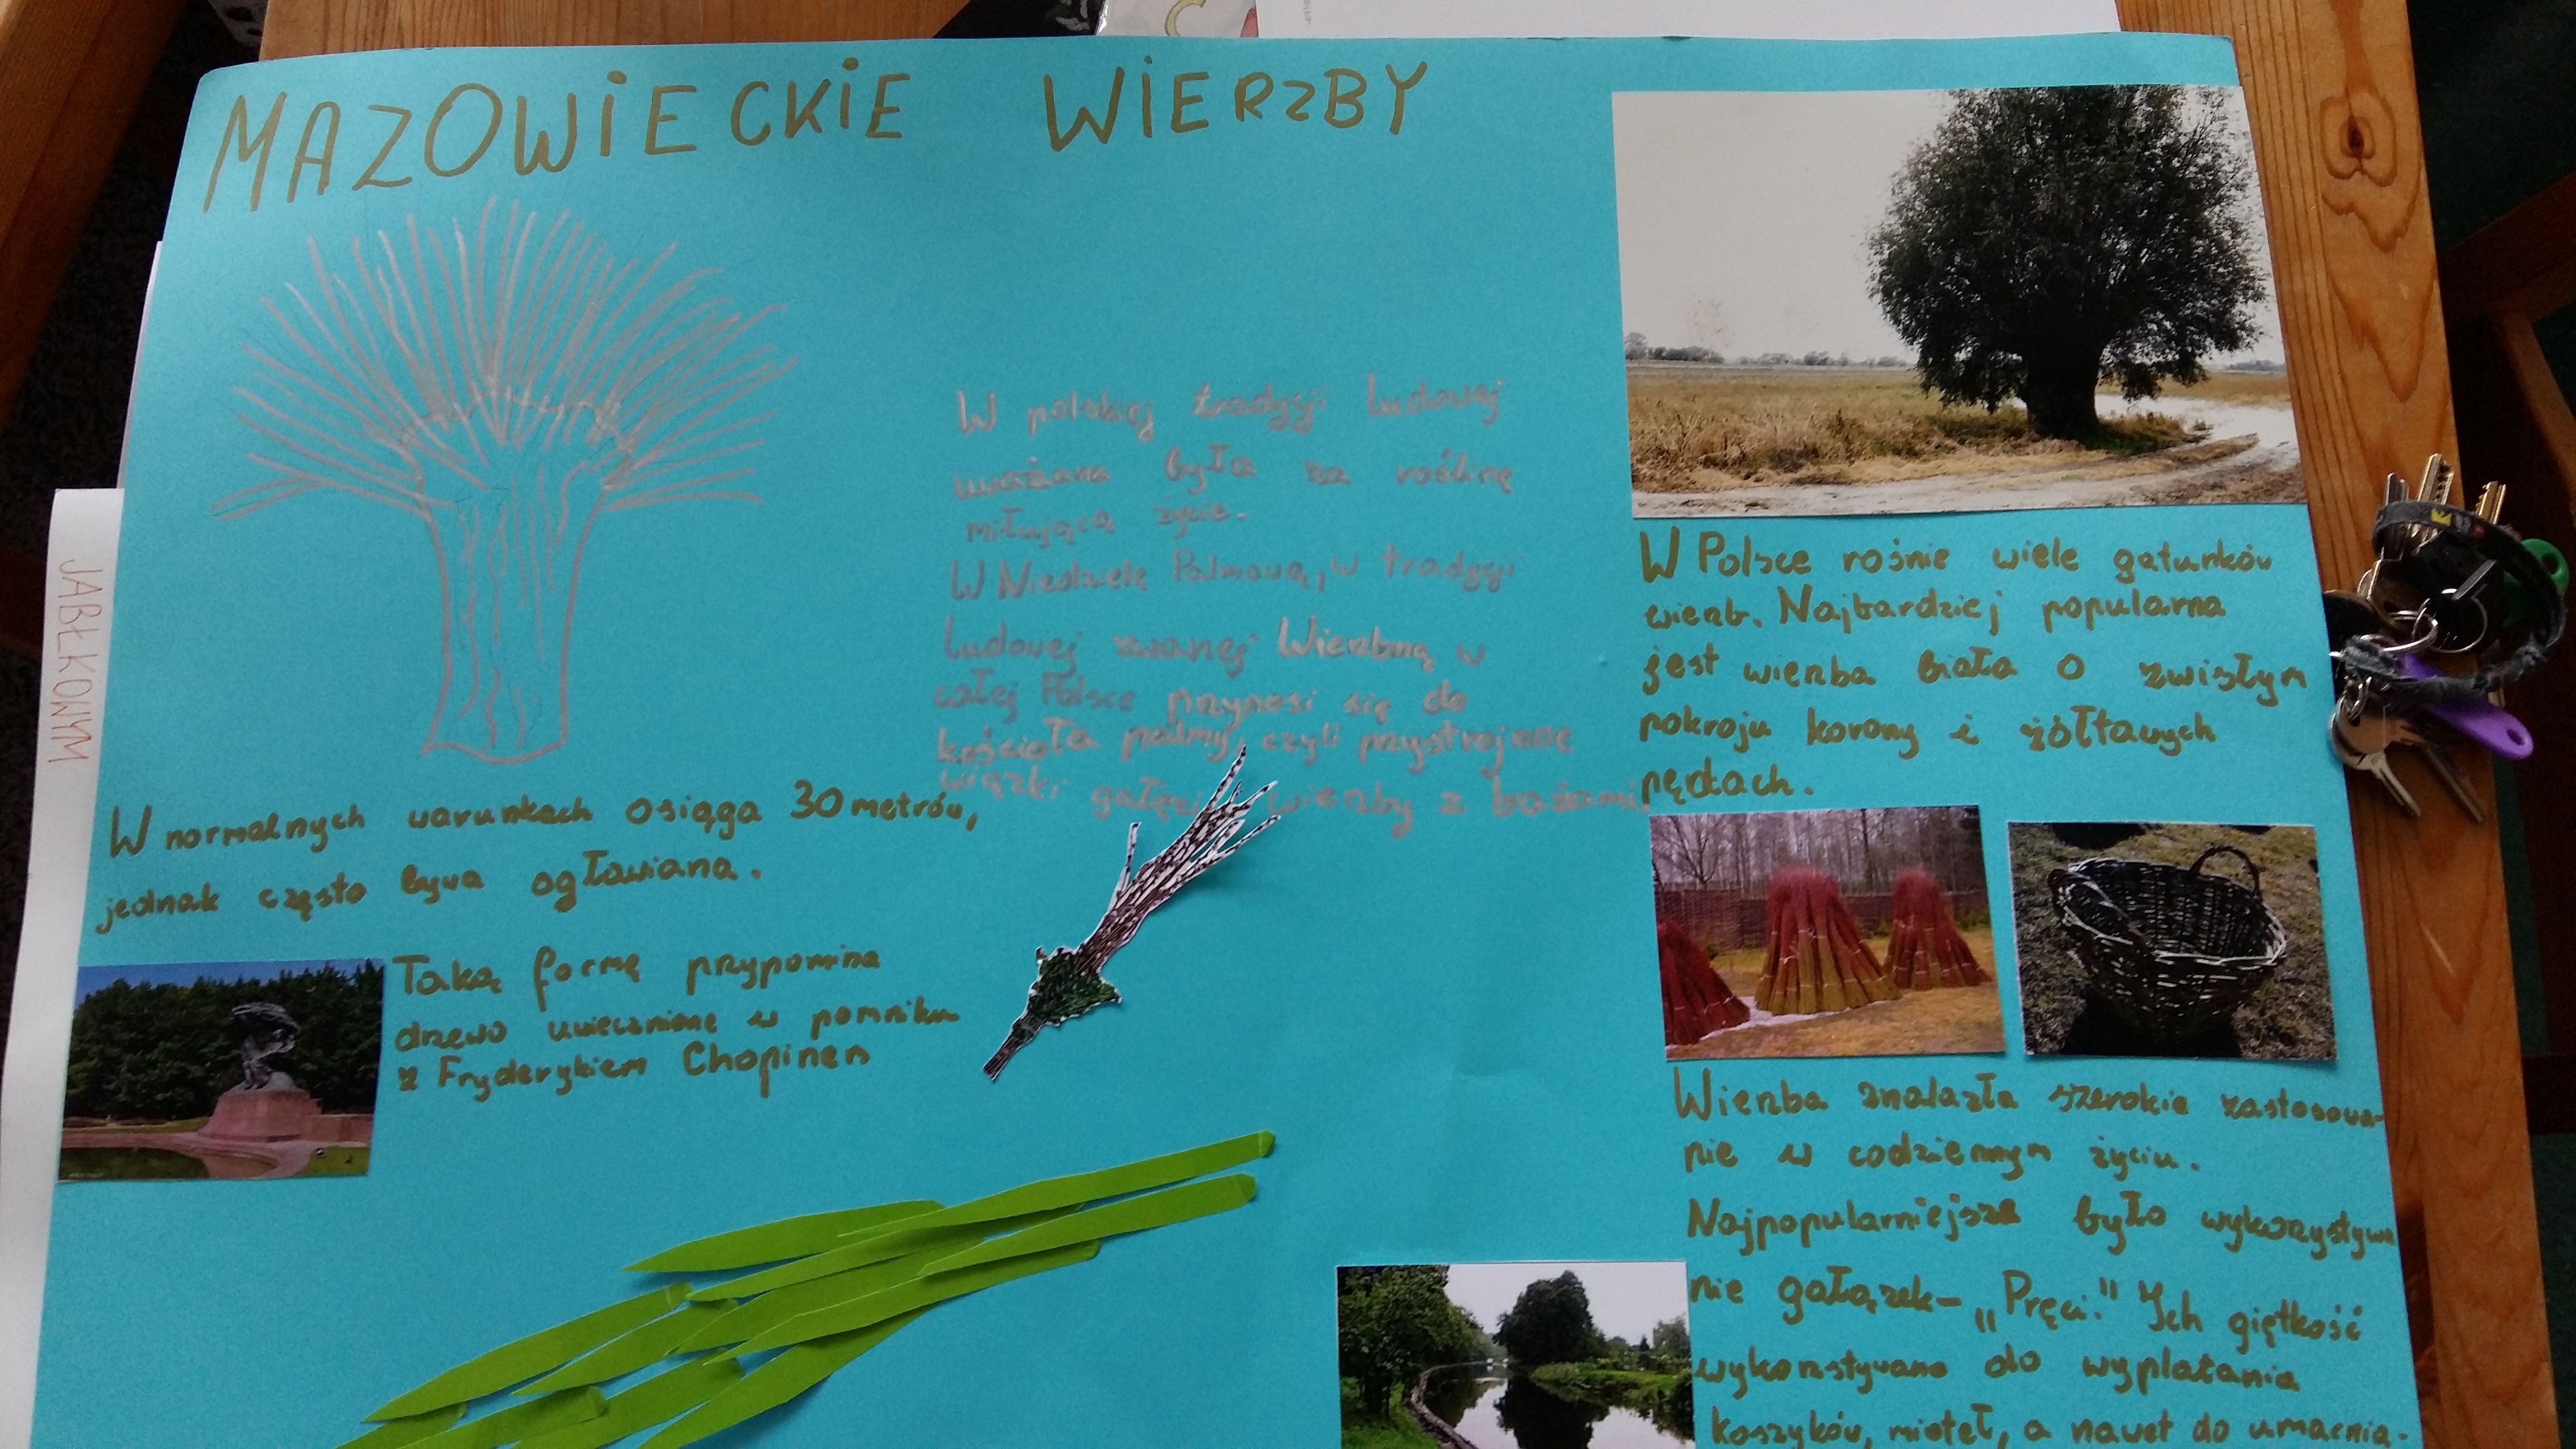 MAZOWIECKIE WIERZBY
W polskiej tradycji ludowej
uważana była za roślinę
miłującą życie.
W Niedzielę Palmową, w tradycji
ludowej zwanej Wierzbną w
całej Polsce przynosi się do
kościoła palmy, czyli przystrojone
wiązki gałęzi wierzby z baziami.
W normalnych warunkach osiąga 30 metrów,
jednak często bywa ogławiana.
Taką formę przypomina
drzewo uwiecznione w pomniku
z Fryderykiem Chopinem
W Polsce rośnie wiele gatunków
wierzb. Najbardziej popularna
jest wierzba biała o zwisłym
pokroju korony i żółtawych
pędach.
Wierzba znalazła szerokie zastosowa-
nie w codziennym życiu.
Najpopularniejsze było wykorzystywa
nie gałązek- „Pręci." Ich giętkość
wykorzstywano do wyplatania
koszyków, mioteł, a nawet do umacnia-
JABŁKOWYM